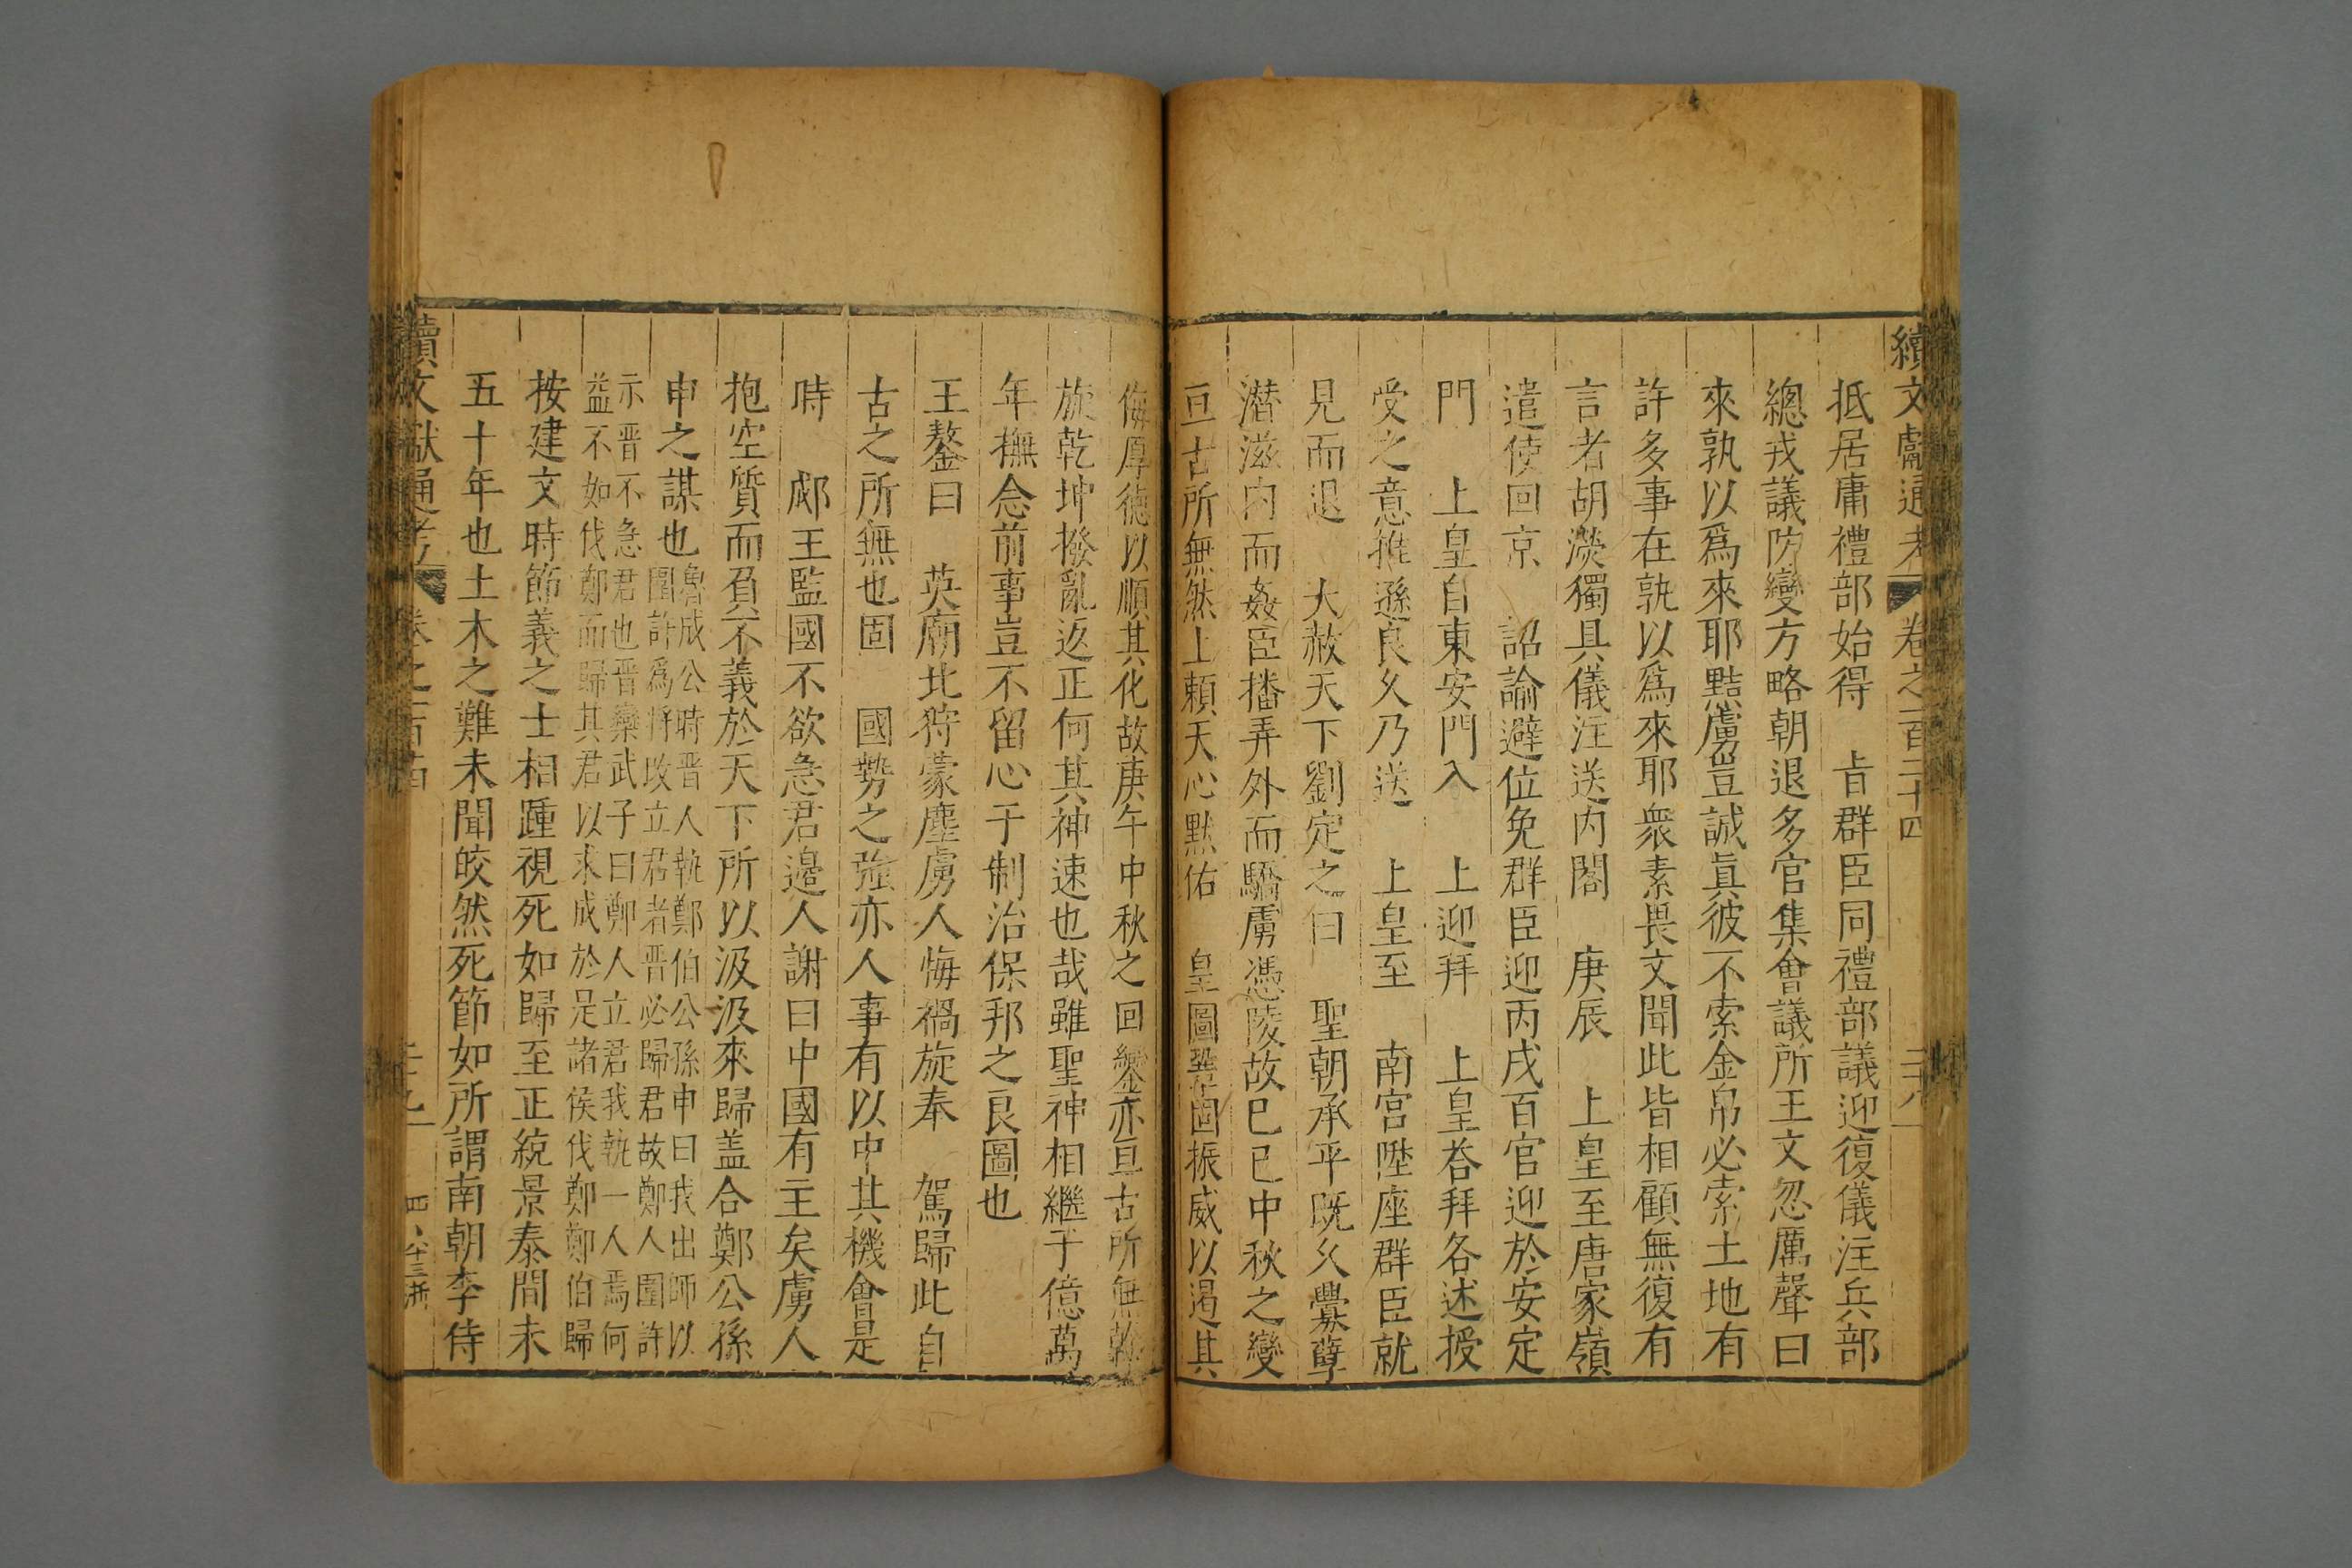 續文獻通考 卷之一百二十四 三十八
抵居庸禮部始得 㫖群臣同禮部議迎復儀注兵部
總戎議防變方略朝退多官集會議所王文忽厲聲曰
來孰以爲來耶黠虜豈誠眞彼不索金帛必索土地有
許多事在孰以爲來耶衆素畏文聞此皆相顧無復有
言者胡濙獨具儀注送内閣 庚辰 上皇至唐家嶺
遣使回京 詔諭避位免群臣迎丙戌百官迎於安定
門 上皇自東安門入 上迎拜 上皇答拜各述授
受之意推遜良久乃送 上皇至 南宮陞座群臣就
見而退 大赦天下劉定之曰 聖朝承平旣久釁孽
潛滋内而姦臣播弄外而驕虜憑陵故已巳中秋之變
亘古所無然上賴天心默佑 皇圖鞏固振威以遏其
侮厚德以順其化故庚午中秋之回鑾亦亘古所無
旋乾坤撥亂返正何其神速也哉雖聖神相繼于億萬
年撫念前事豈不留心于制治保邦之良圖也
王鏊曰 英廟北狩蒙塵虜人悔禍旋奉 駕歸此自
古之所無也固 國勢之強亦人事有以中其機會是
時 郕王監國不欲急君邉人謝曰中國有主矣虜人
抱空質而負不義於天下所以汲汲來歸盖合鄭公孫
申之謀也魯成公時晋人執鄭伯公孫申曰我出師以
圍許爲將改立君者晋必歸君故鄭人圍許
示晋不急君也晋欒武子曰鄭人立君我執一人焉何
益不如伐鄭而歸其君以求成於是諸侯伐鄭鄭伯歸
按建文時節義之士相踵視死如歸至正統景泰間未
五十年也土木之難未聞皎然死節如所謂南朝李侍
續文獻通考